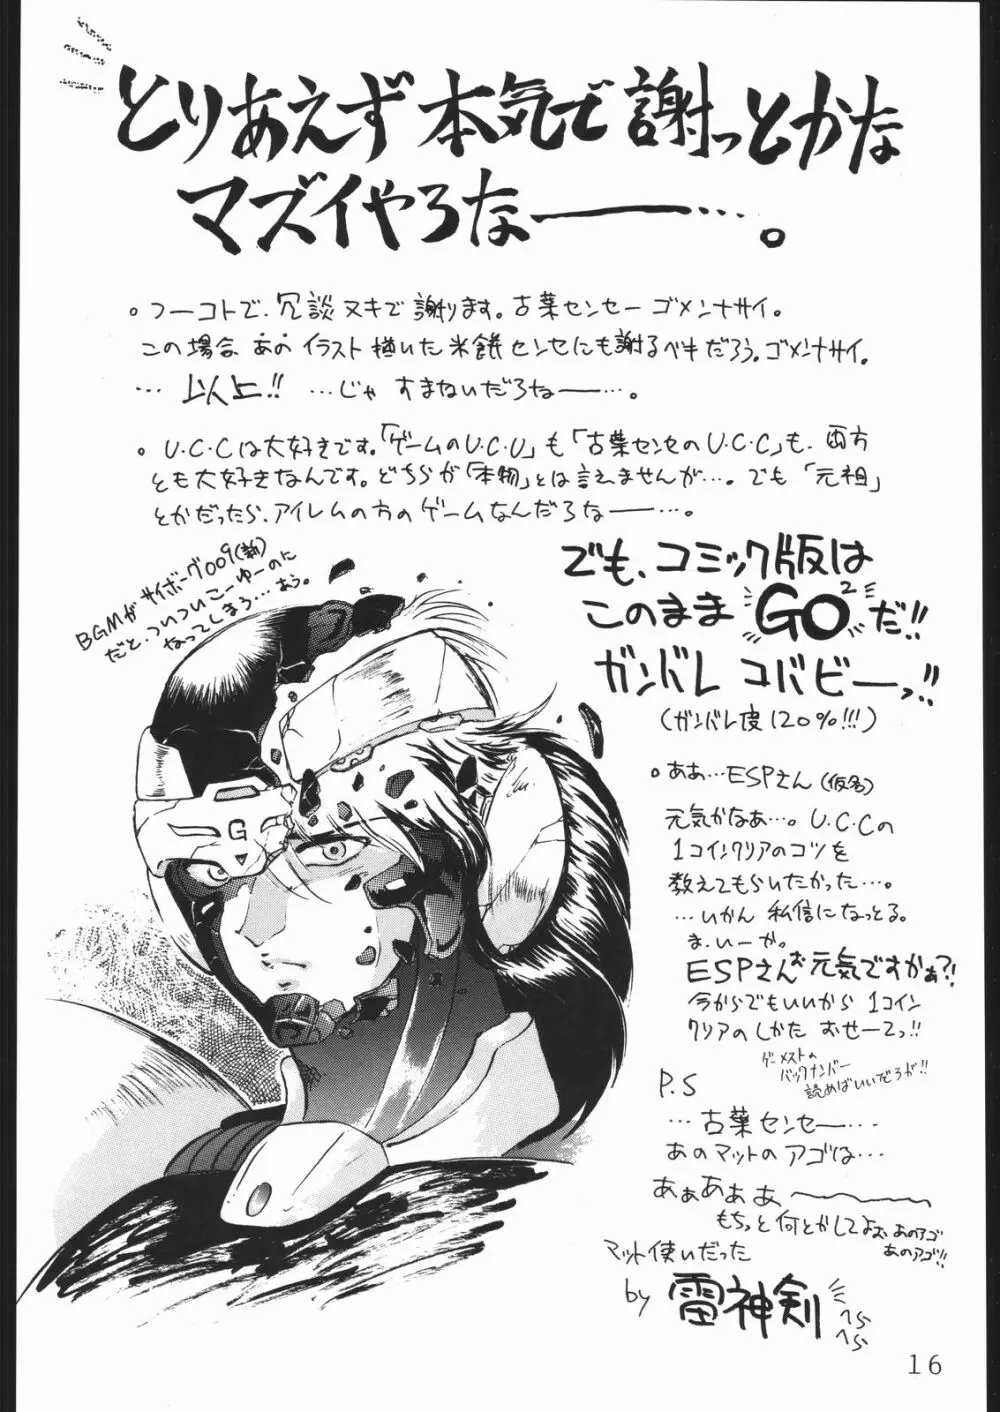 とりあえず本気で謝っとかな
マズイやろな――…。
。つーコトで、冗談ヌキで謝ります。古葉センセーゴメンナサイ。
この場合、あのイラスト描いた米餅センセにも謝るべキだろう。ゴメンナサイ。
…以上!! …じゃすまねいだろねー――…。
。U.C.Cは大好きです。「ゲームのU.C.U」も「古葉センセのU.C.C」も、両方
とも大好きなんです。どちらが「本物」とは言えませんが…。でも「元祖」
とかだったら、アイレムの方のゲームなんだろなー――…。
BGMがサイボーグ009(新)
だと、ついついこーゆーのに
なってしまう…あう。
でも、コミック版は
このままGO²だ!!
ガンバレコバビーッ!!
(ガンバレ度120%!!!)
。ああ…ESPさん(仮名)
元気かなぁ…。U.C.Cの
1コインクリアのコツを
教えてもらいたかった…。
…いかん私信になっとる。
ま、いーか。
ESPさんお元気ですかぁ?!
今からでもいいから1コイン
クリアのしかたおせーてっ!!
ゲーメストの
バックナンバー
読めばいいだろが!!
P.S
…古葉センセー…
あのマットのアゴは…
あぁあぁあ――〜〜
もちっと何とかしてよぉ あのアゴ
あのアゴ!!
マット使いだった
by 雷神剣
へら
へら
G
16